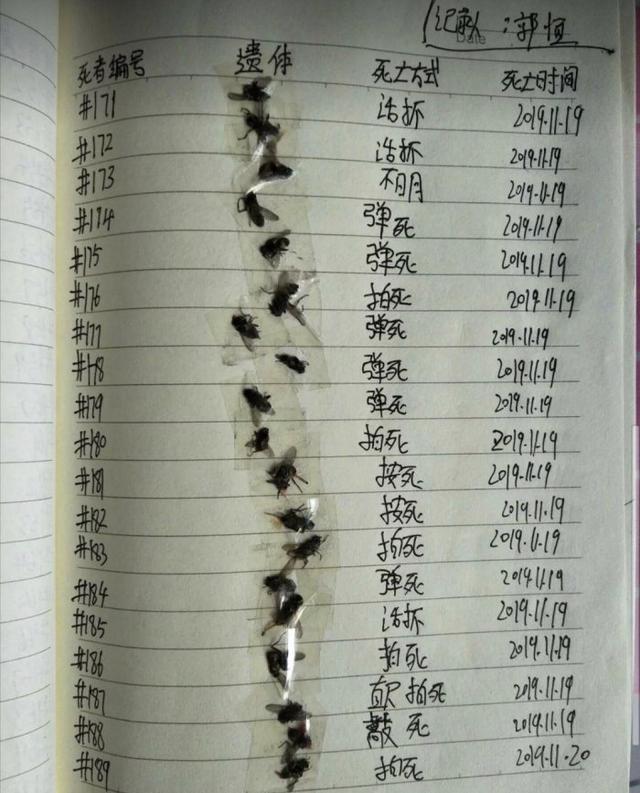 记录人:郭恒
Date
死者编号 遗体 死亡方式 死亡时间
#171 活抓 2019.11.19
#172 活抓 2019.11.19
#173 不明 2019.11.19
#174 弹死 2019.11.19
#175 弹死 2019.11.19
#176 拍死 2019.11.19
#177 弹死 2019.11.19
#178 弹死 2019.11.19
#179 弹死 2019.11.19
#180 拍死 2019.11.19
#181 按死 2019.11.19
#182 按死 2019.11.19
#183 拍死 2019.11.19
#184 弹死 2019.11.19
#185 活抓 2019.11.19
#186 拍死 2019.11.19
#187 拍死 2019.11.19
#188 敲死 2019.11.19
#189 拍死 2019.11.20